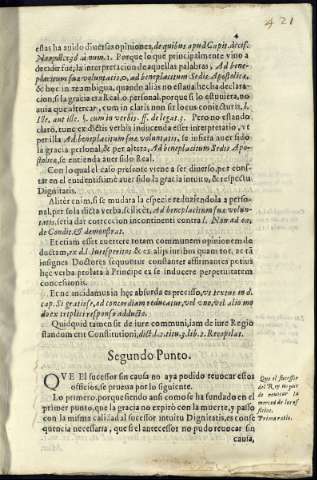 421
4
estas ha auido diuersas opiniones, de quibus apud Capic. decis.
Neapolit. 136 à num. 1. Porque lo que principalmente vino a
decidir fue, la interpretacion de aquellas palabras, Ad bene-
placitum suæ voluntatis, o, ad beneplacitum Sedis Apostolicæ,
& hoc in re ambigua, quando alias no estaua hecha declara-
cion, si la gracia era Real, o personal, porque si lo estuuiera, no
auia que altercar, cum in claris non sit locus coniecturis, l.
Ille, aut ille. §. cum in verbis. ff. de legat. 3. Pero no estando
claro, tunc ex dictis verbis inducenda esset interpretatio, vt
per illa, Ad beneplacitum suæ voluntatis, se infiera auer sido
la gracia personal, & per altera, Ad beneplacitum Sedis Apo-
stolicæ, se entienda auer sido Real.
Con lo qual el caso presente viene a ser diuerso, por cons-
tar en el euidentissimo auer sido la gracia intuitu, & respectu
Dignitatis.
Aliter enim, si se mudara la especie reduziendola a perso-
nal, por sola dicta verba, scilicet, Ad beneplacitum suæ volun-
tatis, seria dar correccion incontinenti contra l. Nam ad ea,
de Condit. & demonstrat.
Et etiam esset euertere totam communem opinionem de
doctam, ex d. l. iurisperitos & ex aliis iuribus quam tot, & tā
insignes Doctores sequuntur constanter assirmantes potius
hęc verba prolata à Principe ex se inducere perpetuitatem
concesionis.
Et ne incidamus in hęc absurda ex preciso, vt textus in d.
cap. Si gratiose, ad concordiam reducatur, vel vno, vel alio mo
do ex triplici responso adducto.
Quidquid tamen sit de iure communi, iam de iure Regio
standum erit Constitutioni, dict. l. 2. titu. 9. lib. 2. Recopilat.
Segundo Punto.
QVE El sucessor sin causa no aya podido reuocar estos
officios, se prueua por lo siguiente.
Lo primero, porque siendo ansi como se ha fundado en el
primer punto, que la gracia no expirò con la muerte, y passo
con la misma calidad al sucessor intuitu Dignitatis, es conse
quencia necessaria, que si el antecessor no pudo reuocar sin
causa,
Que el sucessor
del R, ey no puede
de reuocar la
merced de los of
ficios.
Prima ratio.